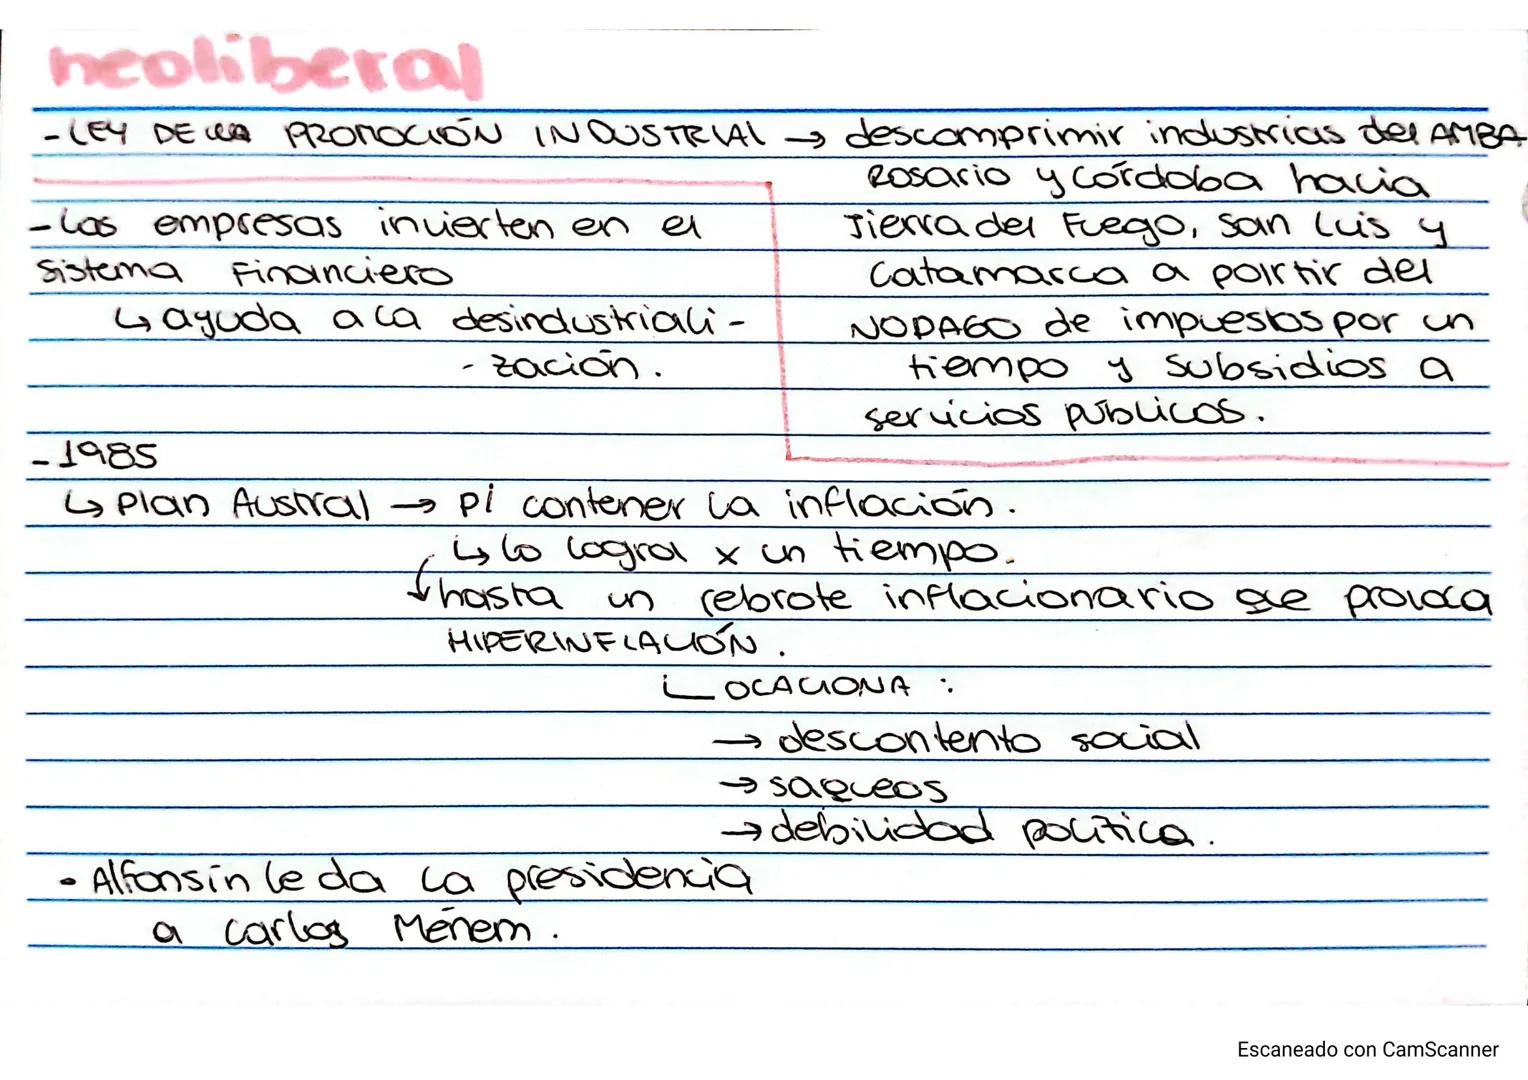 neoliberal
- LEY DE LA PROMOCIÓN INDUSTRIAL → descomprimir industrias del AMBA
Rosario y Córdoba hacia
Tierra del Fuego, San Luis y
Catamarca a partir del
NO PAGO de impuestos por un
tiempo y subsidios a
servicios públicos.
- Las empresas invierten en el
sistema Financiero
↳ ayuda a la desindustriali-
- zación.
- 1985
↳ Plan Austral → p/ contener la inflación.
↳ lo logra x un tiempo.
↓ hasta un rebrote inflacionario que provoca
HIPERINFLACIÓN.
↳ OCACIONA :
→ descontento social
→ saqueos
→ debilidad política.
• Alfonsín le da la presidencia
a Carlos Ménem.
Escaneado con CamScanner